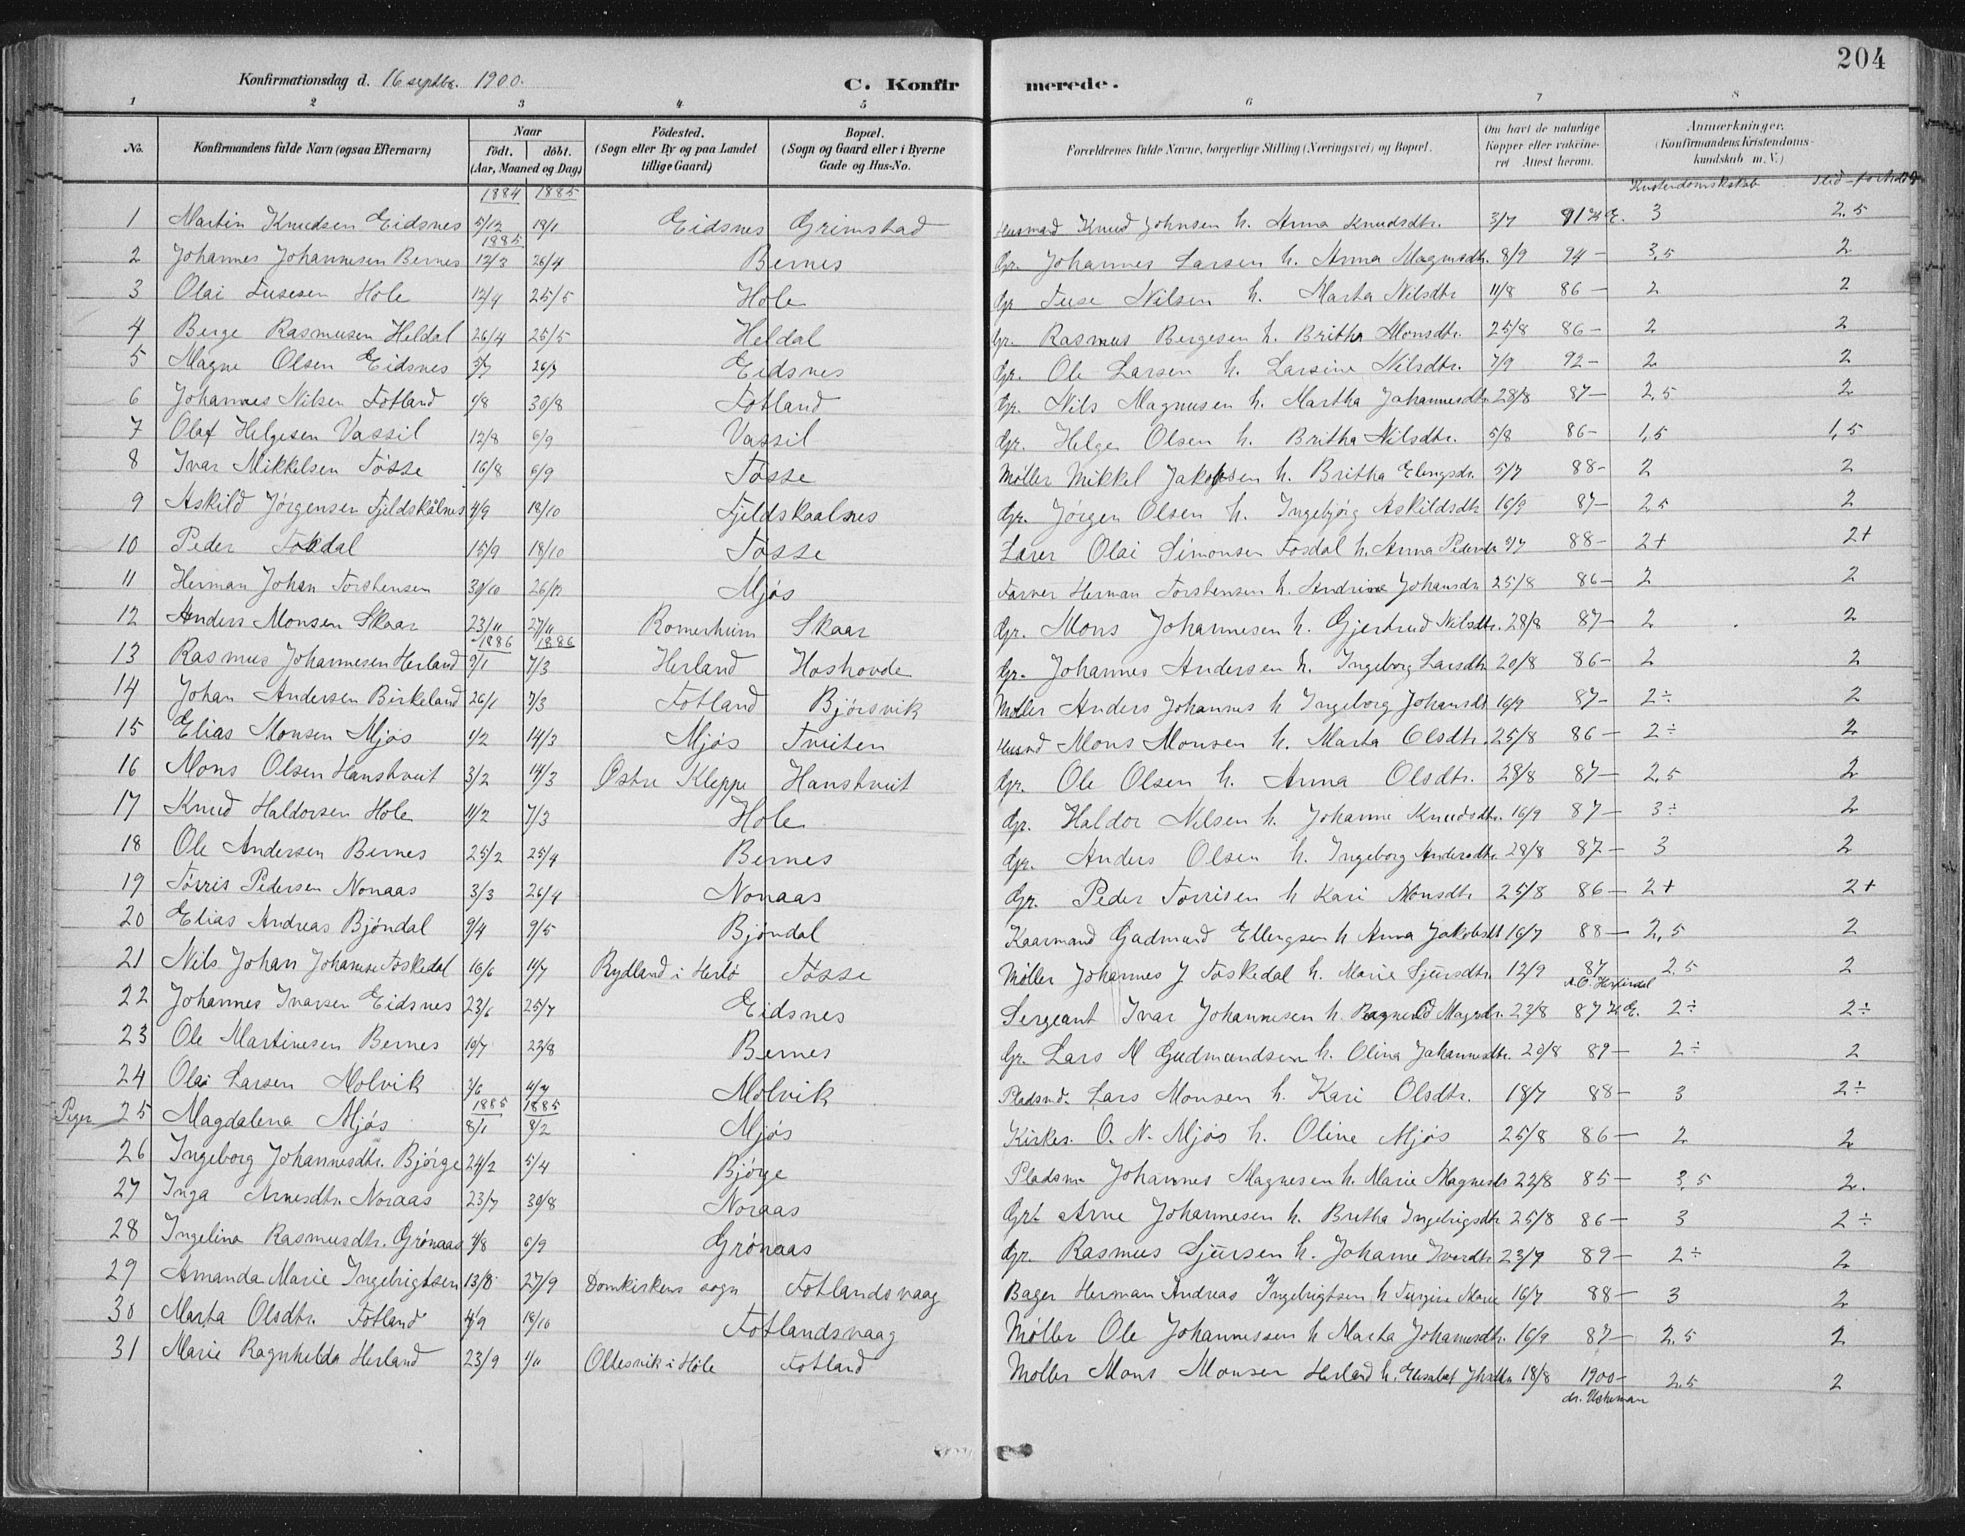 204
Konfirmationsdag d. 16 septbr. 1900.
C. Konfirmerede.
1 2 3 4 5 6 7 8
No. Konfirmandens fulde Navn (ogsaa Efternavn) Naar födt. döbt. (Aar, Maaned og Dag) Födested. (Sogn eller By og paa Landet tillige Gaard) Bopæl. (Sogn og Gaard eller i Byerne Gade og Hus-No. Forældrenes fulde Navne, borgerlige Stilling (Næringsvei) og Bopæl. Om havt de naturlige Kopper eller vaccineret Attest herom. Anmærkninger. (Konfirmandens Kristendomskundskab m. V.)
1884 1885 Kristendomskskab Flid - forhold
1 Martin Knudsen Eidsnes 5/12 18/1 Eidsnes Grimstad Husmand Knud Johnsen h. Anna Knudsdtr. 3/7 91 3 2.5
1885
2 Johannes Johannesen Bernes 12/3 26/4 Bernes Gr. Johannes Larsen h. Anna Magnsdtr. 8/9 94 - 3,5 2
3 Olai Tusesen Hole 12/4 25/5 Hole Gr Tuse Nilsen h. Marta Nilsdtr 11/8 86 - 2 2
4 Berge Rasmusen Heldal 26/4 25/5 Heldal Gr. Rasmus Bergesen h. Britha Monsdtr. 25/8 86 - 2 2
5 Magne Olsen Eidsnes 5/7 26/7 Eidsnes Gr. Ole Larsen h. Larsine Nilsdtr. 7/9 92 - 2 2
6 Johannes Nilsen Fotland 1/8 30/8 Fotland Gr. Nils Magnusen h. Martha Johannesdtr. 28/8 87 - 2,5 2
7 Olaf Helgesen Vassil 12/8 6/9 Vassil Gr. Helge Olsen h. Britha Nilsdtr. 5/8 86 - 1,5 1,5
8 Ivar Mikkelsen Fösse 16/8 6/9 Fosse Møller Mikkel Jakobsen h. Britha Elingsdr. 5/7 88 - 2 2
9 Askild Jørgensen Fjeldskålnes 4/9 18/10 Fjeldskaalnes Gr. Jörgen Olsen h. Ingebjörg Askildsdtr 16/9 87 - 2,5 2
10 Peder Fosdal 15/9 18/10 Fosse Lærer Olai Simonsen Fosdal h. Anna Pedersdtr 88 - 2+ 2+
11 Herman Johan Torstensen 30/10 26/12 Mjös Farver Herman Torstensen h. Andrine Johansdr. 25/8 86 - 2 2
12 Anders Monsen Skaar 23/11 27/11 Romerheim Skaar Gr. Mons Johannesen h. Gjertrud Nilsdtr. 28/8 87 - 2 2
1886 1886
13 Rasmus Johannesen Herland 9/1 7/3 Herland Hoshovde Gr. Johannes Andersen h. Ingeborg Larsdtr. 20/8 86 - 2 2
14 Johan Andersen Birkeland 26/1 7/3 Fotland Bjørsvik Møller Anders Johannes h Ingeborg Johansdt 16/9 87 - 2÷ 2
15 Elias Monsen Mjös 1/2 14/3 Mjös Tveiten Husmd Mons Monsen h. Marta Olsdtr. 25/8 86 - 2÷ 2
16 Mons Olsen Hanstveit 3/2 14/3 Østre Kleppe Hanstveit Gr. Ole Olsen h. Anna Olsdtr. 28/8 87 - 2,5 2
17 Knud Haldorsen Hole 11/2 7/3 Hole Gr. Haldor Nilsen h. Johanne Knudsdtr. 16/9 87 - 3÷ 2
18 Ole Andersen Bernes 25/2 25/4 Bernes Gr. Anders Olsen h. Ingeborg Andersdtr 28/8 87 - 3 2
19 Törris Pedersen Nonaas 3/3 26/4 Nonaas Gr. Peder Torrisen h Kari Monsdtr 25/8 86 - 2+ 2+
20 Elias Andreas Bjöndal 9/4 9/5 Bjöndal Kaarmand Gudmund Ellengsen h Anna Jakobsdt 16/7 88 - 2,5 2
21 Nils Johan Johannesen Foskedal 16/6 11/7 Rydland i Herlö Fösse Møller Johannes J Foskedal h. Marie Sjursdtr. 12/9 87 2,5 2
22 Johannes Ivarsen Eidsnes 23/6 25/7 Eidsnes Sergeant Ivar Johannesen h. Magnsdr. 23/8 87 2÷ 2÷
23 Ole Martinesen Bernes 10/7 22/8 Bernes Gr. Lars M Gudmundsen h. Olina Johannesdtr. 20/8 89 - 2÷ 2
24 Olai Larsen Molvik 3/6 11/7 Molvik Pladsmd. Lars Monsen h. Kari Olsdtr. 18/7 88 - 3 2÷
1885 1885
Piger 25 Magdalena Mjös 8/1 8/2 Mjös Kirkes. O. N. Mjös h. Oline Mjös 25/8 86 - 2 2
26 Ingeborg Johannesdtr. Bjørge 24/2 5/4 Bjørge Pladsm Johannes Magnesen h. Marie Magnesdr 22/8 85 - 3,5 2.
27 Inga Arnesdtr. Noraas 23/7 30/8 Noraas Grb Arne Johannesen h. Britha Ingebrigsdtr 25/8 86 - 3 2÷
28 Ingelina Rasmusdtr. Grönaas 4/8 6/9 Grönaas Gr. Rasmus Sjursen h. Johanne Iversdtr 23/7 89 - 2÷ 2
29 Amanda Marie Ingebrigtsen 13/8 27/9 Domkirkens sogn Fotlandsvaag Bager Herman Andreas Ingebrigtsen h Marie 16/7 88 - 3 2
30 Marta Olsdtr. Fotland 4/9 18/10 Fotlandsvaag Møller Ole Johannessen h Marta Johannesdtr. 16/9 87 - 2,5 2
31 Marie Ragnhilda Herland 23/9 1/11 Ollesvik i Hole Fotland Møller Mons Monsen Herland h. Elisabet 18/8 1900 - 2,5 2